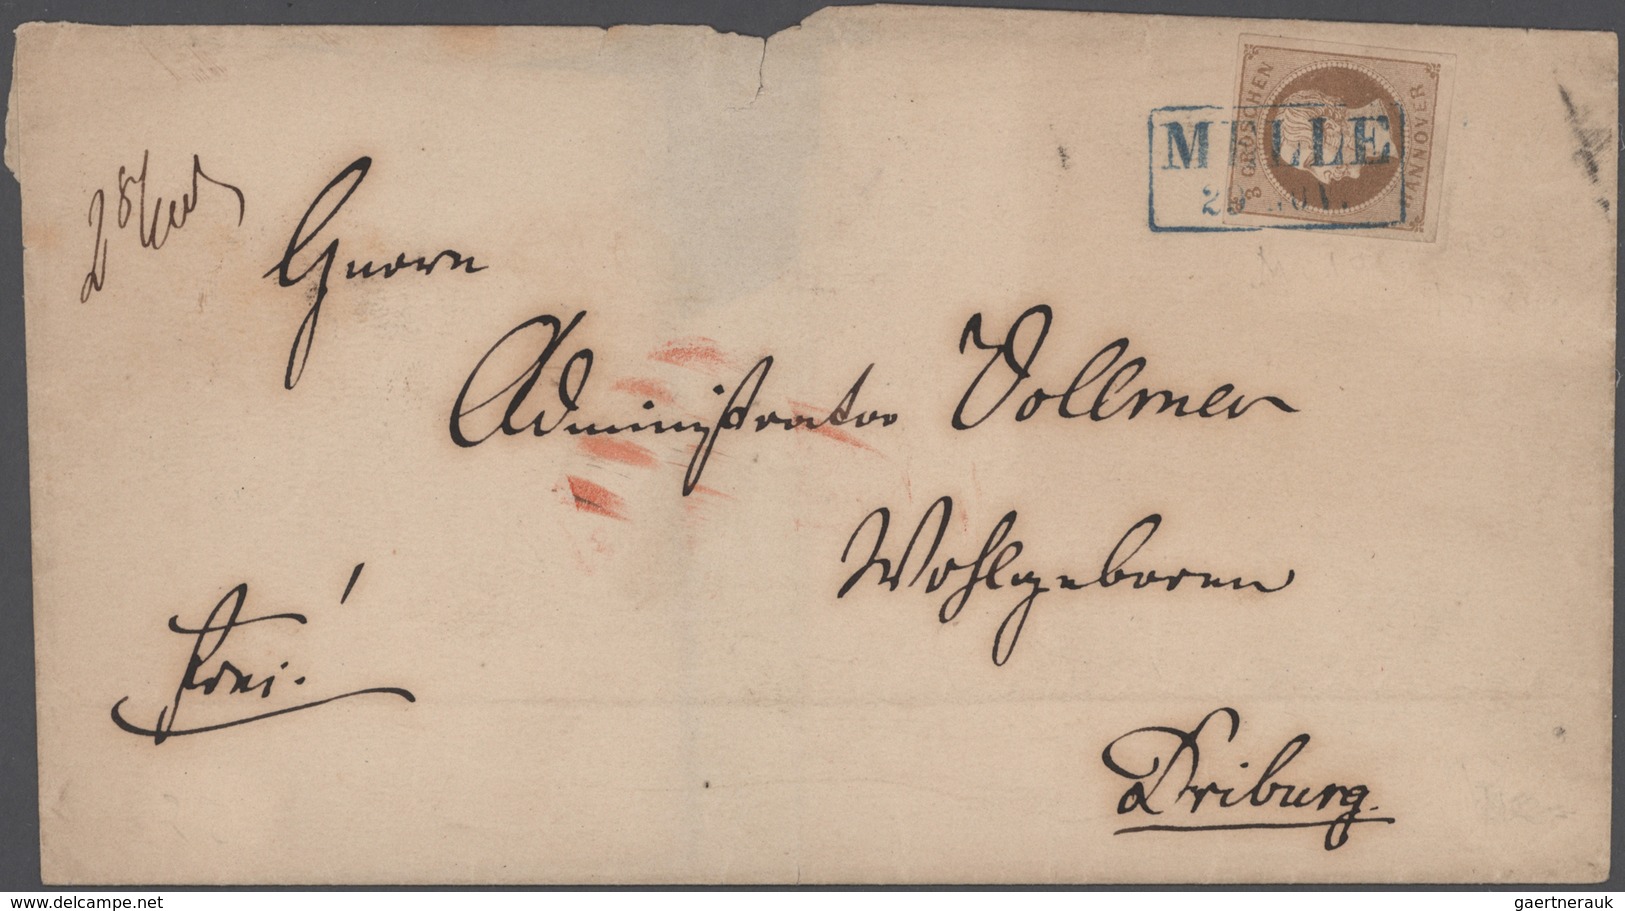 3 GROSCHEN
HANNOVER
MELLE
29 NOV.
Herrn
Administrator Vollmer
Wohlgeboren
Frei.
Driburg.
delcampe.net
gaertnerauk